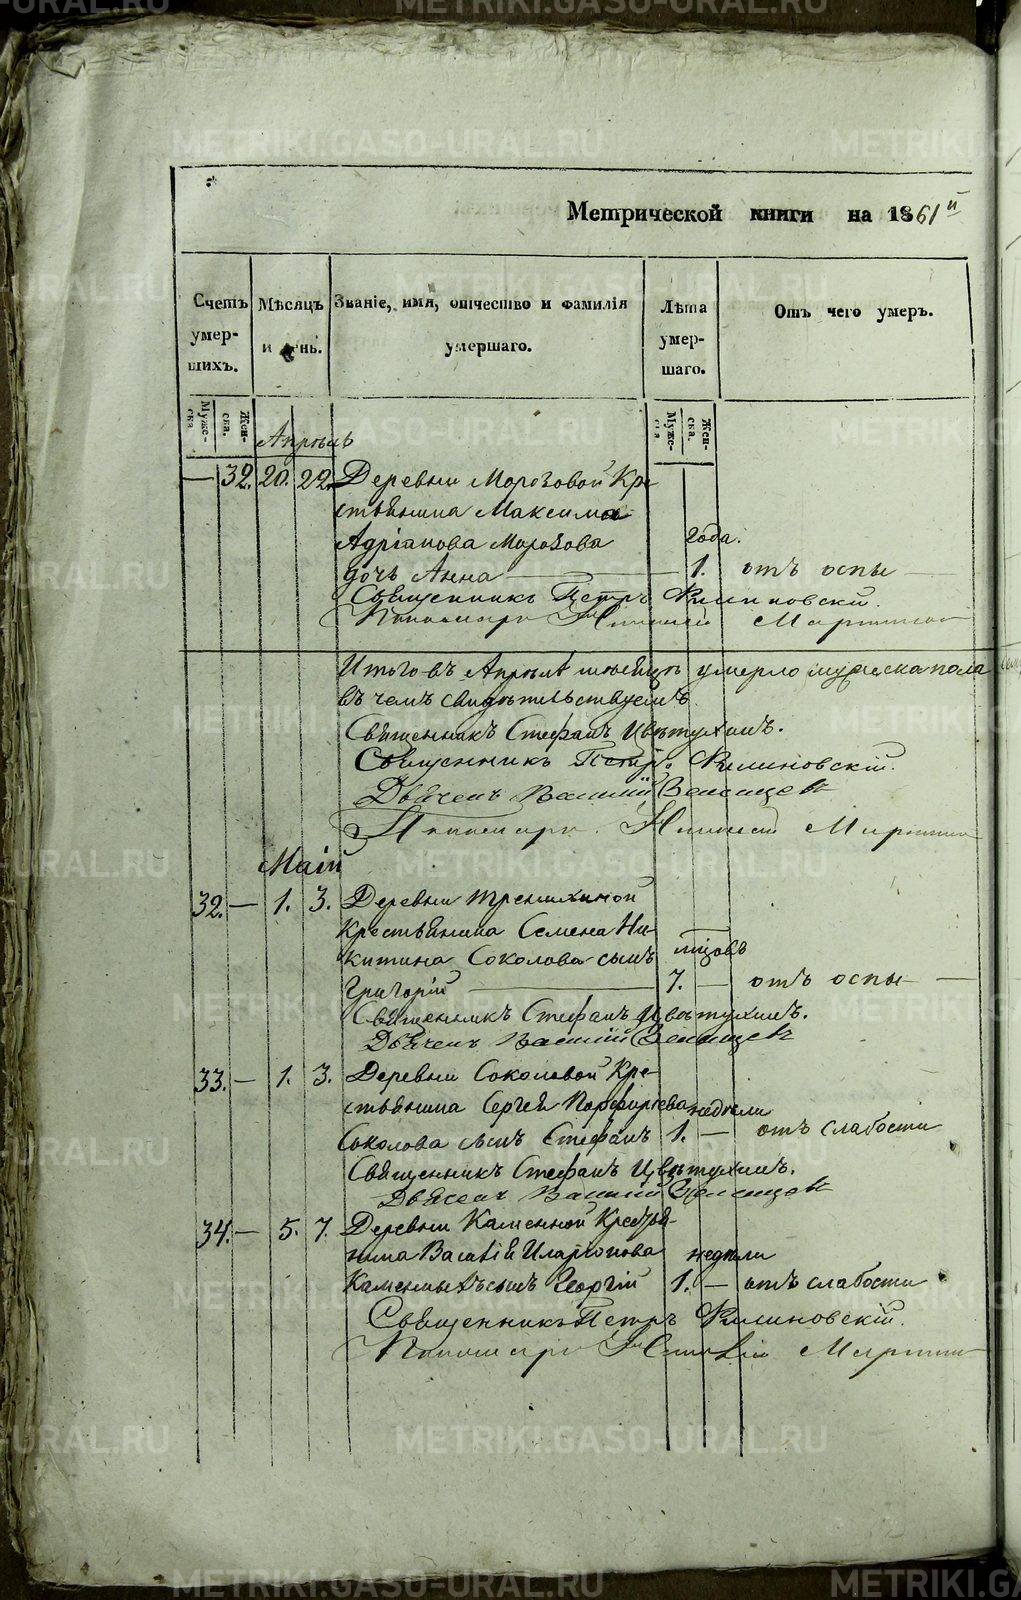 Метрической книги на 1861й
Счетъ умершихъ. Мѣсяцъ и день. Званіе, имя, отчество и фамилія умершаго. Лѣта умершаго. Отъ чего умеръ.
Мужеска. Женска. Мужеска. Женска.
Апрѣль
— 32. 20. 22. Деревни Морозовой Кре-
стьянина Максима
Адріанова Морозова года.
дочь Анна — 1. отъ оспы —
Священникъ Петръ Филиновскій.
Пономарь
Итого въ Апрѣлѣ мѣсяцѣ умерло мужеска пола
въ чемъ свидѣтельствуемъ
Священникъ Стефанъ Цвѣтухинъ.
Священникъ Петръ Филиновскій.
Дьячекъ Василій
Пономарь
Май
32. — 1. 3. Деревни Тренихиной
Крестьянина Семена Ни-
китина Соколова сынъ мѣсяцовъ
Григорій — 7. — отъ оспы —
Священникъ Стефанъ Цвѣтухинъ.
Дьячекъ Василій
33. — 1. 3. Деревни Соколовой Кре-
стьянина Сергея Порфирьева недѣли
Соколова сынъ Стефанъ 1. — отъ слабости
Священникъ Стефанъ Цвѣтухинъ.
Дьячекъ Василій
34. — 5. 7. Деревни Каменной Крестья-
нина Василія Иларіонова недѣли
Каменныхъ сынъ Георгій 1. — отъ слабости
Священникъ Петръ Филиновскій.
Пономарь
METRIKI.GASO-URAL.RU